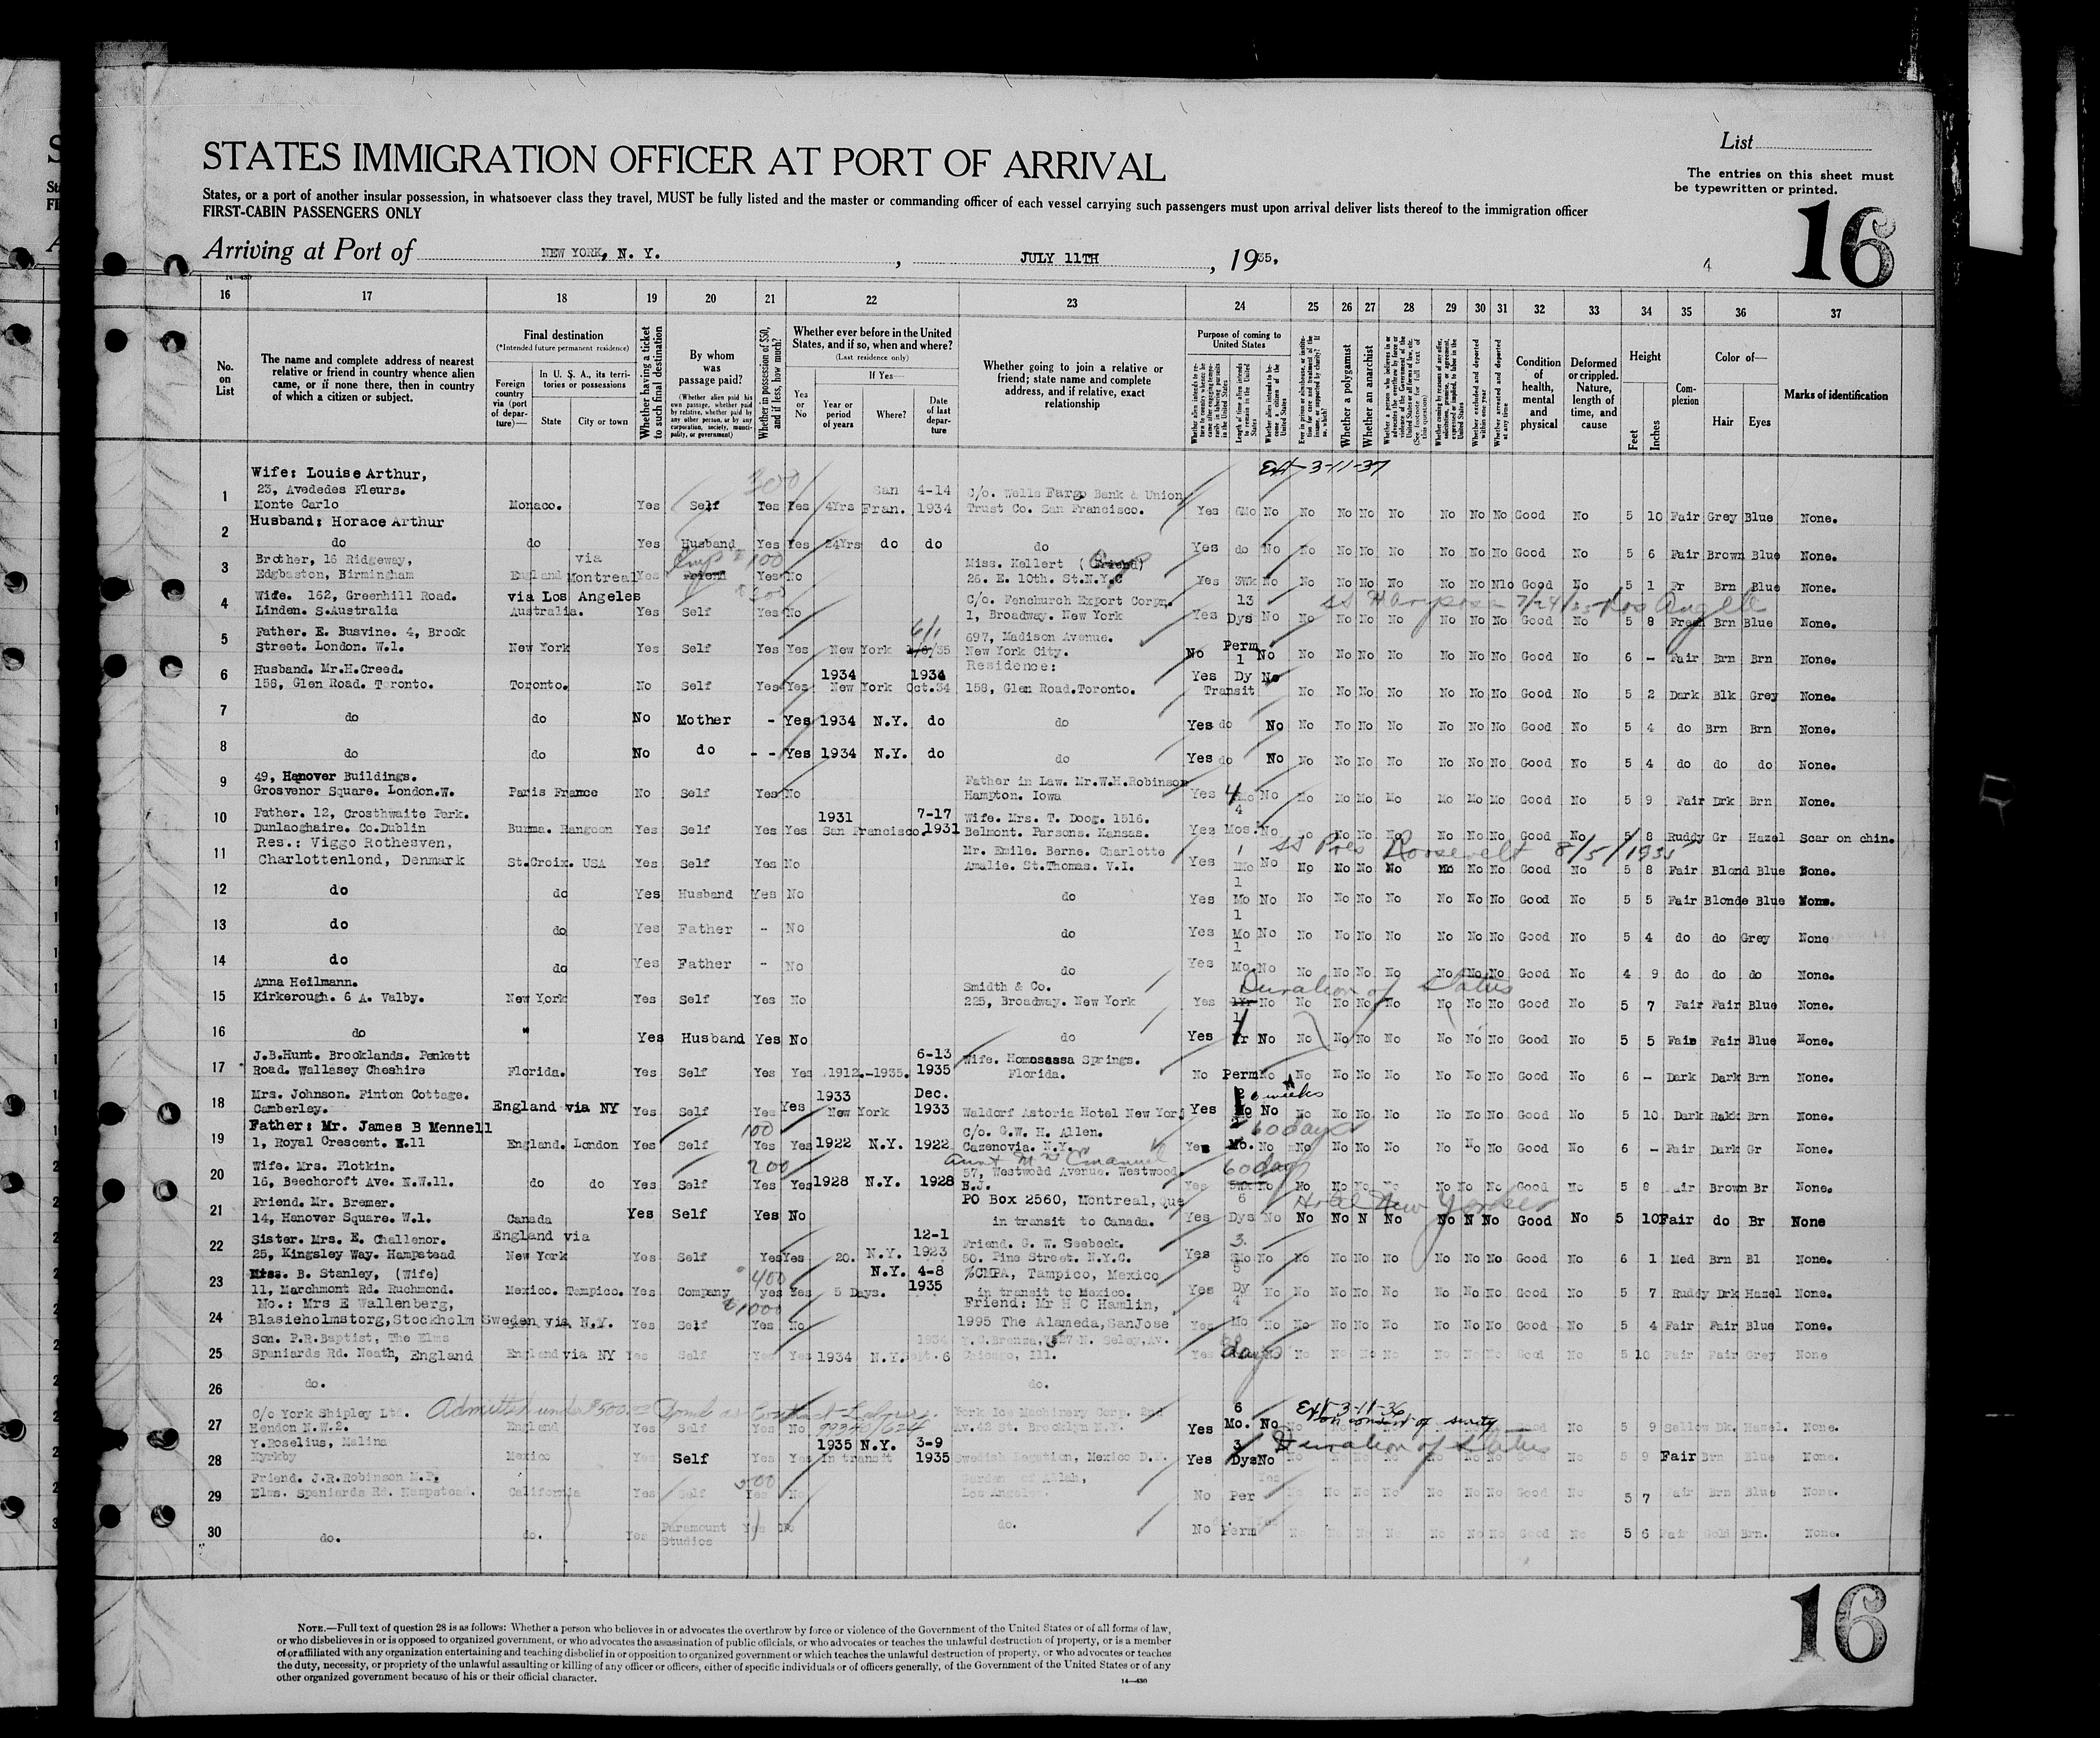 List
STATES IMMIGRATION OFFICER AT PORT OF ARRIVAL
The entries on this sheet must
be typewritten or printed.
States, or a port of another insular possession, in whatsoever class they travel, MUST be fully listed and the master or commanding officer of each vessel carrying such passengers must upon arrival deliver lists thereof to the immigration officer
FIRST-CABIN PASSENGERS ONLY
16
Arriving at Port of NEW YORK, N. Y. , JULY 11TH , 1935.
4
16 17 18 19 20 21 22 23 24 25 26 27 28 29 30 31 32 33 34 35 36 37
No. on List
The name and complete address of nearest relative or friend in country whence alien came, or if none there, then in country of which a citizen or subject.
Final destination
(*Intended future permanent residence)
Foreign country via (port of departure)—
In U. S. A., its territories or possessions
State City or town
Whether having a ticket to such final destination
By whom was passage paid?
(Whether alien paid his own passage, whether paid by relative, whether paid by any other person, or by any corporation, society, municipality, or government)
Whether in possession of $50, and if less, how much?
Whether ever before in the United States, and if so, when and where?
(Last residence only)
Yes or No
If Yes—
Year or period of years Where? Date of last departure
Whether going to join a relative or friend; state name and complete address, and if relative, exact relationship
Purpose of coming to United States
Length of time alien intends to remain in the United States
Whether a polygamist
Whether an anarchist
Whether excluded and deported within one year
Whether arrested and deported at any time
Condition of health, mental and physical
Deformed or crippled. Nature, length of time, and cause
Height
Feet Inches
Complexion
Color of—
Hair Eyes
Marks of identification
Ext 3-11-37
Wife: Louise Arthur, 300
23, Avededes Fleurs. San 4-14 C/o. Wells Fargo Bank & Union
1 Monte Carlo Monaco. Yes Self Yes Yes 4Yrs Fran. 1934 Trust Co. San Francisco. Yes 6Mo No No No No No No No No Good No 5 10 Fair Grey Blue None.
Husband: Horace Arthur
2 do do Yes Husband Yes Yes 24Yrs do do do Yes do No No No No No No No No Good No 5 6 Fair Brown Blue None.
Brother, 16 Ridgeway, via $100 Miss. Kellert (Friend)
3 Edgbaston, Birmingham England Montreal Yes Friend Yes No 26. E. 10th. St.N.Y.C Yes 3Wk No No No No No No No No Good No 5 1 Fr Brn Blue None.
Wife. 162, Greenhill Road. via Los Angeles C/o. Fenchurch Export Corpn. 13 SS Mariposa 7/24/35 Los Angeles
4 Linden. S.Australia Australia. Yes Self Yes No 1, Broadway. New York Yes Dys No No No No No No No No Good No 5 8 Fresh Brn Blue None.
Father. E. Busvine. 4, Brook 6/1 697, Madison Avenue.
5 Street. London. W.1. New York Yes Self Yes Yes New York /35 New York City. No Perm No No No No No No No No Good No 6 - Fair Brn Brn None.
Husband. Mr.H.Creed. 1934 1934 Residence: 1
6 158, Glen Road. Toronto. Toronto. No Self Yes Yes New York Oct.34 158, Glen Road.Toronto. Yes Dy No Transit No No No No No No No Good No 5 2 Dark Blk Grey None.
7 do do No Mother - Yes 1934 N.Y. do do Yes do No No No No No No No No Good No 5 4 do Brn Brn None.
8 do do No do - - Yes 1934 N.Y. do do Yes do No No No No No No No No Good No 5 4 do do do None.
49, Hanover Buildings. Father in Law. Mr.W.H.Robinson
9 Grosvenor Square. London.W. Paris France No Self Yes No Hampton. Iowa Yes 4 Mo No No No No No No No No Good No 5 9 Fair Drk Brn None.
Father. 12, Crosthwaite Park. 1931 7-17 Wife. Mrs. T. Doog. 1516. 4
10 Dunlaoghaire. Co.Dublin Burma. Rangoon Yes Self Yes Yes San Francisco. 1931 Belmont. Parsons. Kansas. Yes Mos. No No No No No No No No Good No 5 8 Ruddy Gr Hazel Scar on chin.
Res.: Viggo Rothesven, Mr. Emile. Berne. Charlotte 1 SS Pres Roosevelt 8/5/1935
11 Charlottenlond, Denmark St.Croix. USA Yes Self Yes No Amalie. St.Thomas. V.I. Yes Mo No No No No No No No No Good No 5 8 Fair Blond Blue None.
12 do do Yes Husband Yes No do Yes 1 Mo No No No No No No No No Good No 5 5 Fair Blonde Blue None.
13 do do Yes Father - No do Yes 1 Mo No No No No No No No No Good No 5 4 do do Grey None
14 do do Yes Father - No do Yes 1 Mo No No No No No No No No Good No 4 9 do do do None.
Anna Heilmann. Smidth & Co. Duration of Status
15 Kirkerough. 6 A. Valby. New York Yes Self Yes No 225, Broadway. New York Yes 1Yr No No No No No No No No Good No 5 7 Fair Fair Blue None.
16 do " Yes Husband Yes No do Yes 1 Yr No No No No No No No No Good No 5 5 Fair Fair Blue None.
J.B.Hunt. Brooklands. Penkett 6-13 Wife. Homosassa Springs.
17 Road. Wallasey Cheshire Florida. Yes Self Yes Yes 1912.-1935. 1935 Florida. No Perm No No No No No No No No Good No 6 - Dark Dark Brn None.
Mrs. Johnson. Finton Cottage. 1933 Dec. weeks
18 Camberley. England via NY Yes Self Yes Yes New York 1933 Waldorf Astoria Hotel New York Yes Mo No No No No No No No No Good No 5 10 Dark Brn None.
Father: Mr. James B Mennell 100 C/o. G.W. H. Allen. 60 days
19 1, Royal Crescent. W.11 England. London Yes Self Yes Yes 1922 N.Y. 1922 Cazenovia. N.Y. Yes Mo. No No No No No No No No Good No 6 - Fair Dark Gr None.
Wife. Mrs. Flotkin. 200 Aunt Mrs Emanuel 60 days
20 16, Beechcroft Ave. N.W.11. do do Yes Self Yes Yes 1928 N.Y. 1928 57, Westwodd Avenue. Westwood. N.J. Yes No No No No No No No No Good No 5 8 Fair Brown Br None.
Friend. Mr. Bremer. PO Box 2560, Montreal, Que 6 Hotel New Yorker
21 14, Hanover Square. W.1. Canada Yes Self Yes No in transit to Canada. Yes Dys No No No N No No N No Good No 5 10 Fair do Br None
Sister. Mrs. E. Challenor. England via 12-1 Friend. G. W. Seebeck. 3
22 25, Kingsley Way. Hampstead New York Yes Self Yes Yes 20. N.Y. 1923 50. Pine Street. N.Y.C. Yes Mo No No No No No No No No Good No 6 1 Med Brn Bl None.
Miss. B. Stanley, (Wife) $400 N.Y. 4-8 %CMPA, Tampico, Mexico 5
23 11, Marchmont Rd. Richmond. Mexico. Tampico. Yes Company yes Yes 5 Days. 1935 in transit to Mexico. Yes Dy No No No No No No No No Good No 5 7 Ruddy Drk Hazel None.
Mo.: Mrs E Wallenberg, $1000 Friend: Mr H C Hamlin, 4
24 Blasieholmstorg, Stockholm Sweden via N.Y. Yes Self Yes No 1995 The Alameda, SanJose Yes Mo No No No No No No No No Good No 5 4 Fair Fair Blue None.
Son. P.R.Baptist, The Elms 1934 N. Seley, Av.
25 Spaniards Rd. Heath, England England via NY Yes Self Yes Yes 1934 N.Y. Sept. 6 Chicago, Ill. Yes days No No No No No No No No Good No 5 10 Fair Fair Grey None
26 do. do.
Admitted under $500.00 Bond as Contract Laborer. 99340/624
C/o York Shipley Ltd. York Ice Machinery Corp. 2nd 6 Ext 3-11-36 on consent of surety
27 Hendon N.W.2. England Yes Self Yes No Av. 42 St. Brooklyn N.Y. Yes Mo. No No Good No 5 9 Sallow Dk. Hazel. None.
Y.Roselius, Malina 1935 N.Y. 3-9 3 Duration of Status
28 Myrkby Mexico Yes Self Yes Yes In transit 1935 Swedish Legation, Mexico D.F. Yes Dys No No No No No No No No Good No 5 9 Fair Brn Blue None.
Friend. J.R.Robinson M.P. 500 Garden of Allah, Yes
29 Elms. Spaniards Rd. Hampstead. California Yes Self Yes No Los Angeles. No Per No No No No No No No Good No 5 7 Fair Brn Blue None.
30 do. do. Yes Paramount Studios Yes No do. No Perm Yes No No No No No No No Good No 5 6 Fair Gold Brn. None.
NOTE.—Full text of question 28 is as follows: Whether a person who believes in or advocates the overthrow by force or violence of the Government of the United States or of all forms of law,
or who disbelieves in or is opposed to organized government, or who advocates the assassination of public officials, or who advocates or teaches the unlawful destruction of property, or is a member
of or affiliated with any organization entertaining and teaching disbelief in or opposition to organized government or which teaches the unlawful destruction of property, or who advocates or teaches
the duty, necessity, or propriety of the unlawful assaulting or killing of any officer or officers, either of specific individuals or of officers generally, of the Government of the United States or of any
other organized government because of his or their official character.
14—430
16